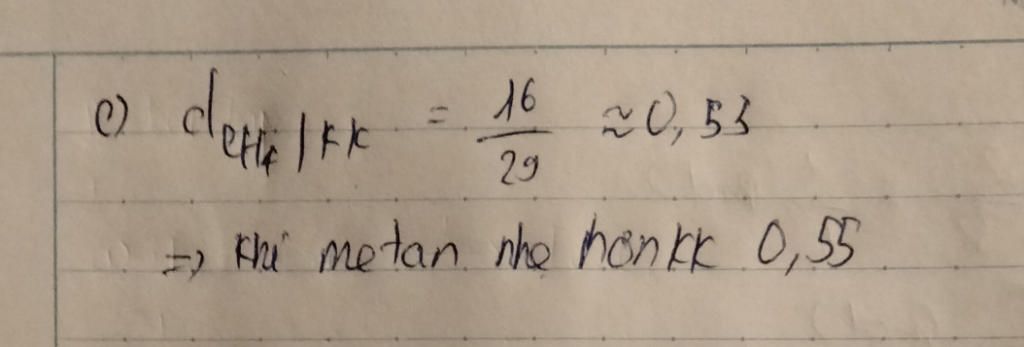 c) d CH₄/KK = 16/29 ≈ 0,53
=> Khí metan nhẹ hơn KK 0,55